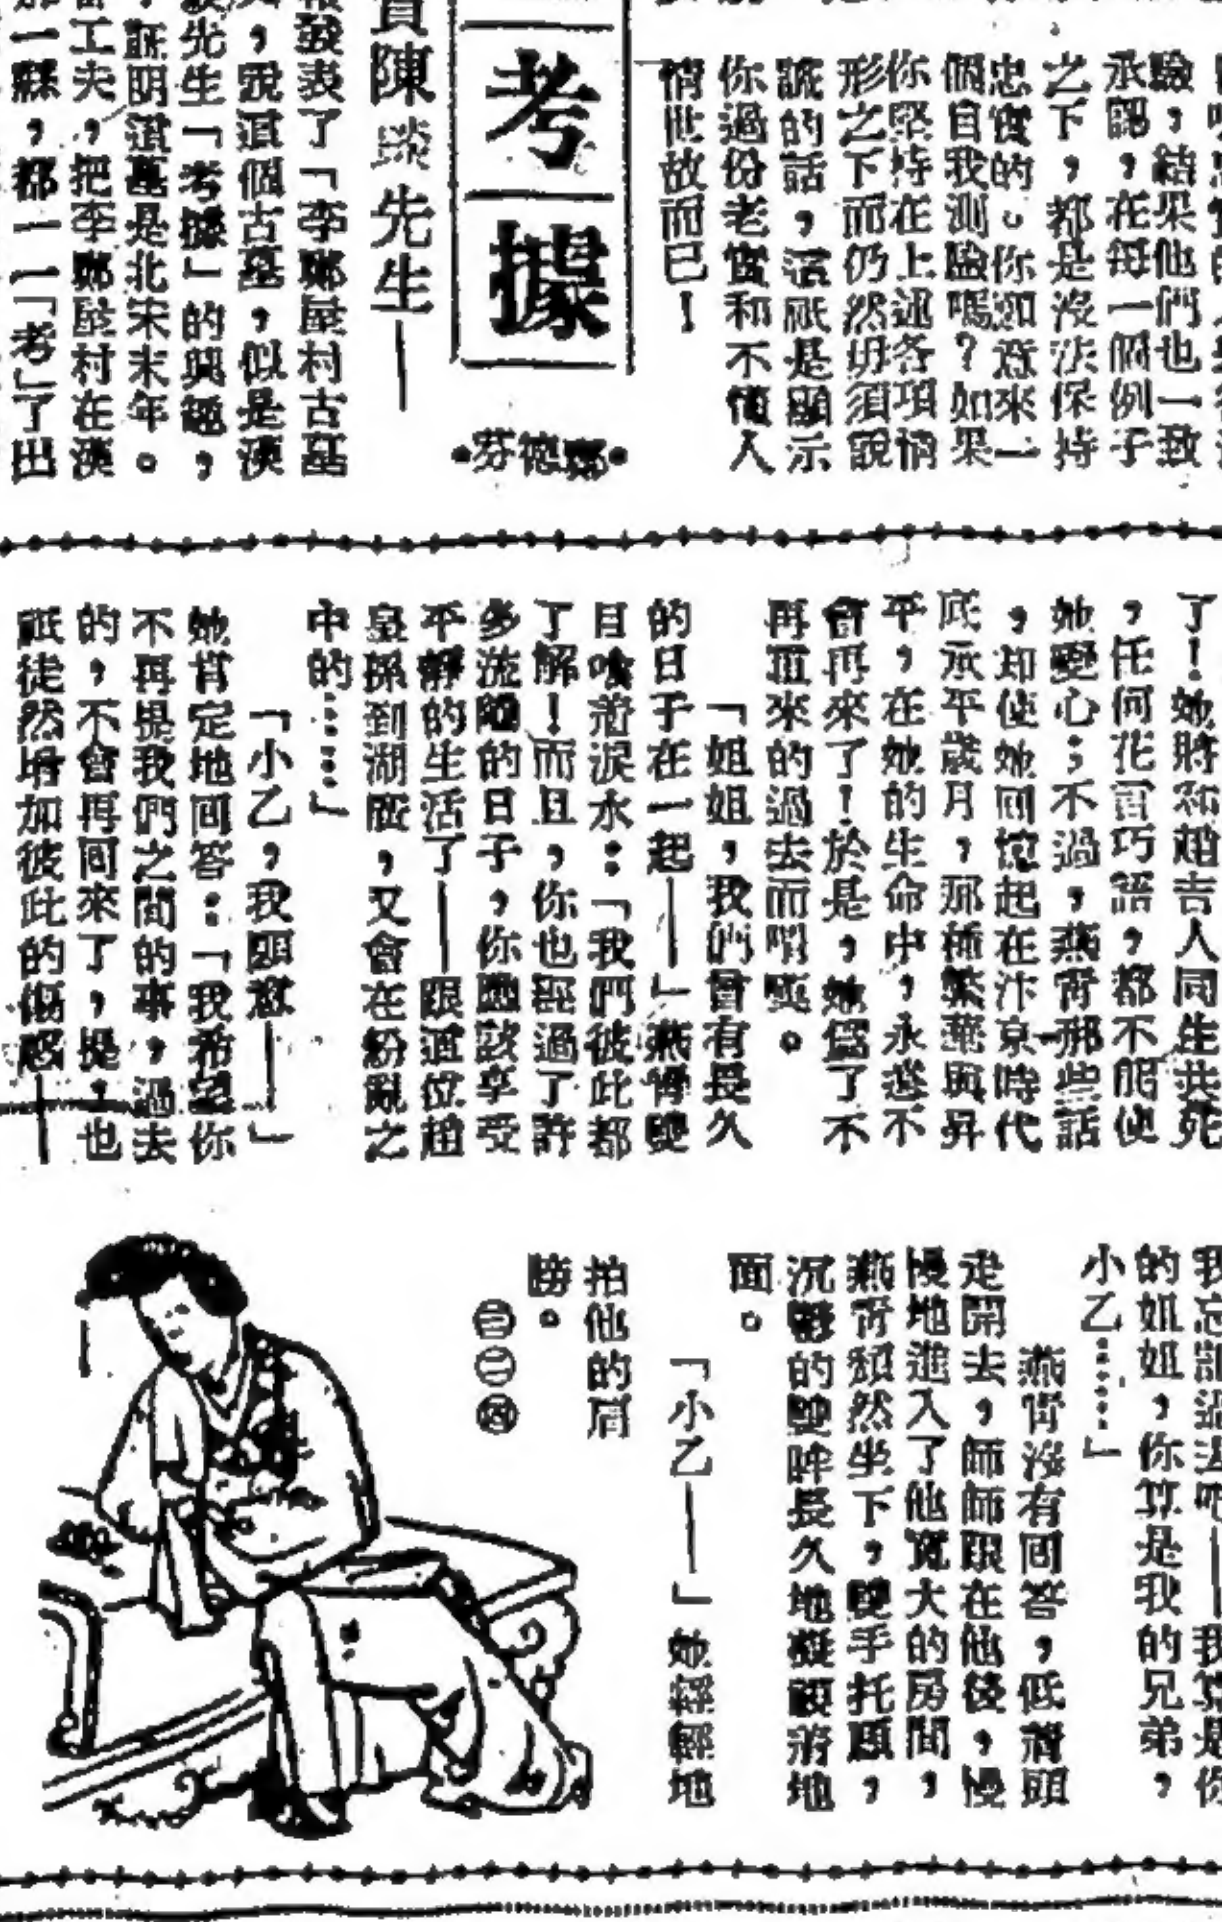 驗，結果他們也一致
承認，在每一個例子
之下，都是沒法保持
忠實的。你知意來一
個自我測驗嗎？如果
你堅持在上述各項情
形之下而仍然毋須說
謊的話，這祇是顯示
你過份老實和不懂人
情世故而已！
考據
•鄭德芬•
陳談先生——
發表了「李鄭屋村古墓
，說這個古墓，似是漢
先生「考據」的興趣，
，証明這墓是北宋末年。
工夫，把李鄭屋村在漢
一縣，都一一「考」了出
了！她將和趙吉人同生共死
，任何花言巧語，都不能使
她變心；不過，燕青那些話
，却使她回憶起在汴京時代
底承平歲月，那種繁華與昇
平，在她的生命中，永遠不
會再來了！於是，她爲了不
再重來的過去而嘆。
「姐姐，我們曾有長久
的日子在一起——」燕青雙
目噙着淚水：「我們彼此都
了解！而且，你也經過了許
多流離的日子，你應該享受
平靜的生活了——跟這位趙
皇孫到湖畔，又會在紛亂之
中的……」
「小乙，我願意——」
她肯定地回答：「我希望你
不再提我們之間的事，過去
的，不會再回來了，提，也
祇徒然增加彼此的傷感——
我忘記過去吧——我算是你
的姐姐，你算是我的兄弟，
小乙……」
燕青沒有回答，低着頭
走開去，師師跟在他後，慢
慢地進入了他寬大的房間，
燕青頹然坐下，雙手托頭，
沉鬱的雙眸長久地凝視着地
面。
「小乙——」她輕輕地
拍他的肩
膀。
㊂㊁㊃